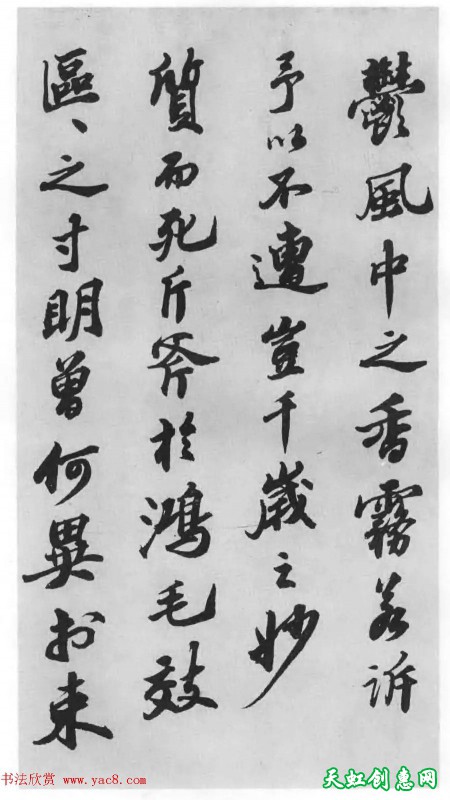 鬱風中之香霧若訴
予以不遭豈千歲之妙
質而死斤斧於鴻毛效
區、之寸明曾何異於束
书法欣赏 www.yac8.com
天虹创惠网